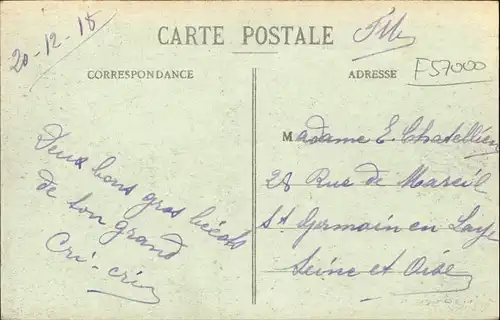 20-12-18
CARTE POSTALE
CORRESPONDANCE
ADRESSE
F57000
Deux bons gros bécots
de ton grand
Cri-cri
Madame E. Chatellier
28 Rue de Mareil
St Germain en Laye
Seine et Oise